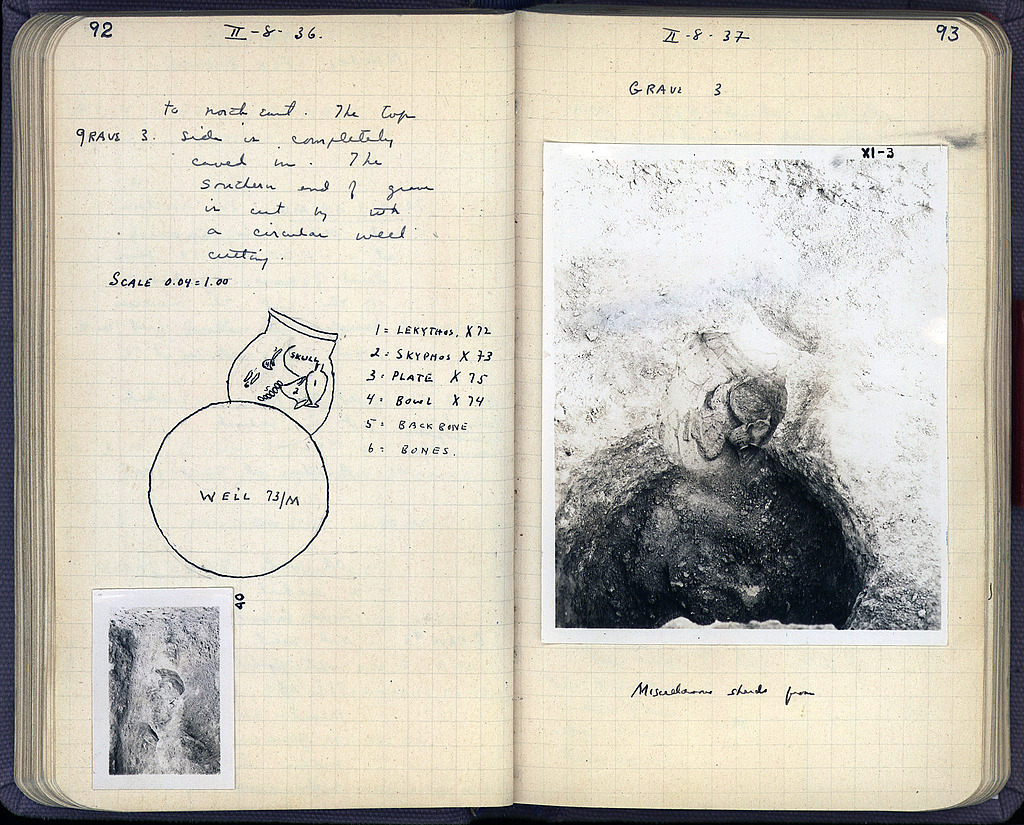 92
II-8-36.
to north east. The top
GRAVE 3. side is completely
caved in. The
southern end of grave
is cut by
a circular well
cutting.
SCALE 0.04=1.00
SKULL
1
2
WELL 73/M
1= LEKYTHOS, X72
2= SKYPHOS X73
3= PLATE X75
4= BOWL X74
5= BACKBONE
6= BONES.
40
93
II-8-37
GRAVE 3
XI-3
Miscellaneous sherds from